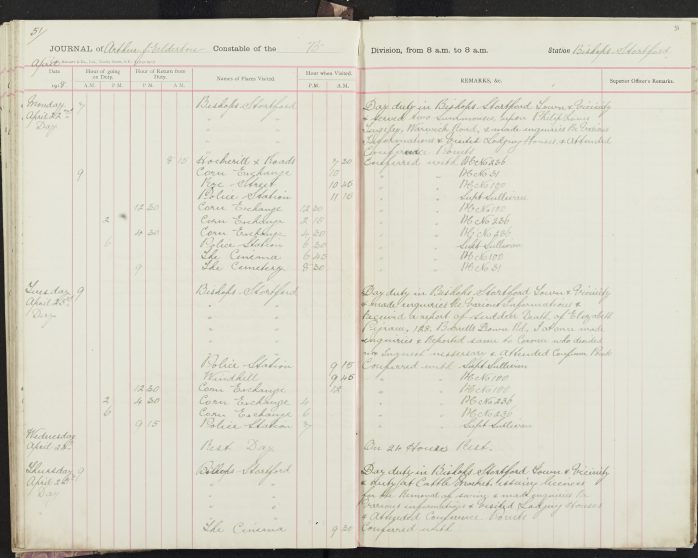 51
JOURNAL of Arthur J. Elderton Constable of the "B" Division, from 8 a.m. to 8 a.m. Station Bishops Stortford
April
Date
1918
Hour of going on Duty.
A.M. P.M.
Hour of Return from Duty.
P.M. A.M.
Names of Places Visited.
Hour when Visited.
P.M. A.M.
REMARKS, &c.
Superior Officer's Remarks.
Monday 7 Bishops Stortford Day duty in Bishops Stortford Town & Vicinity
April 22nd " " & served two Summonses upon Philip
Day " " Warwick Road, & made enquiries Re Various
" " Informations & Visited Lodging Houses, & Attended
Conference Points
8 15 Hockerill & Roads 7 20 Conferred with PC No 236
9 Corn Exchange 10 " " PC No 31
Rye Street 10 45 " " PC No 100
Police Station 11 15 " " Supt Sullivan
12 30 Corn Exchange 12 30 " " PC No 100
2 Corn Exchange 2 15 " " PC No 236
4 30 Corn Exchange 4 30 " " PC No 236
6 Police Station 6 30 " " Supt Sullivan
The Cinema 6 45 " " PC No 100
9 The Cemetery 8 30 " " PC No 31
Tuesday 9 Bishops Stortford Day duty in Bishops Stortford Town & Vicinity
April 23rd " " & made enquiries Re Various Informations &
Day " " Received a report of Sudden Death of Elizabeth
" " 128. Rd. I at once made
" " enquiries & Reported same to Coroner who decided
" " no Inquest necessary & attended Conference Points
Police Station 9 15 Conferred with Supt Sullivan
Windhill 9 45 " " PC No 100
12 30 Corn Exchange 12 " " PC No 100
2 4 30 Corn Exchange 4 " " PC No 236
6 Corn Exchange 6 " " PC No 236
9 15 Police Station 7 " " Supt Sullivan
Wednesday
April 24th Rest Day On 24 Hours Rest.
Thursday 9 Bishops Stortford Day duty in Bishops Stortford Town & Vicinity
April 25th " " & duty at Cattle Market issuing licences
Day " " for the Removal of swine & made enquiries Re
" " Various informations & visited Lodging Houses
" " & Attended Conference Points
The Cinema 9 30 Conferred with